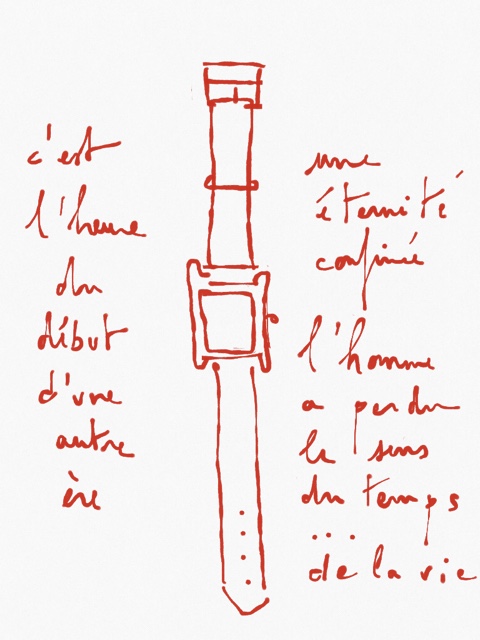 c'est
l'heure
du
début
d'une
autre
ère
une
éternité
confinée
l'homme
a perdu
le sens
du temps
...
de la vie